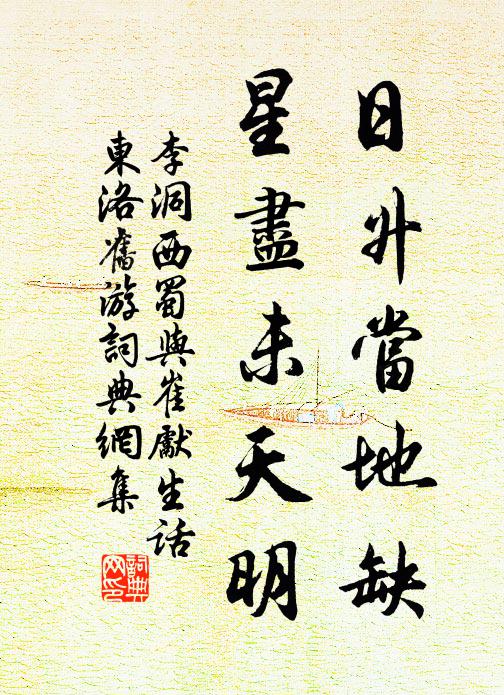 日升當地缺
星盡未天明
李洞西蜀與崔獻生話
東洛舊游詞典網集
詞典網印